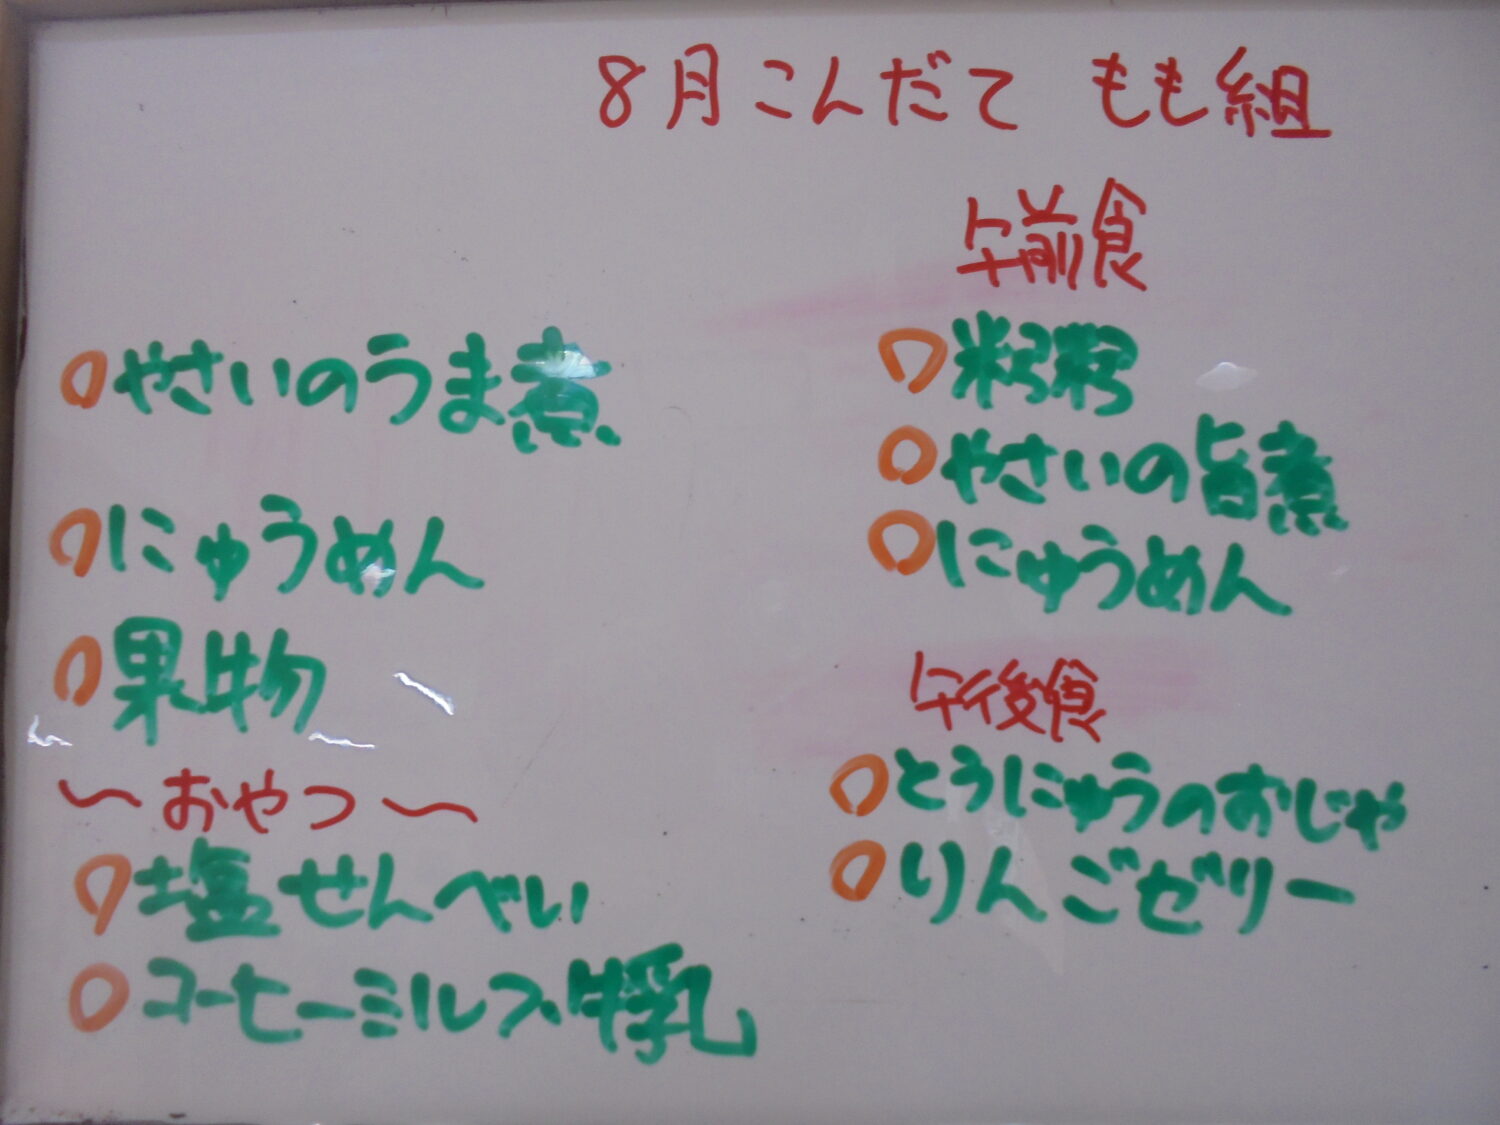 8月こんだて もも組
○やさいのうま煮
○にゅうめん
○果物
〜おやつ〜
○塩せんべい
○コーヒーミルク・牛乳
午前食
○粥
○やさいの旨煮
○にゅうめん
午後食
○とうにゅうのおじや
○りんごゼリー